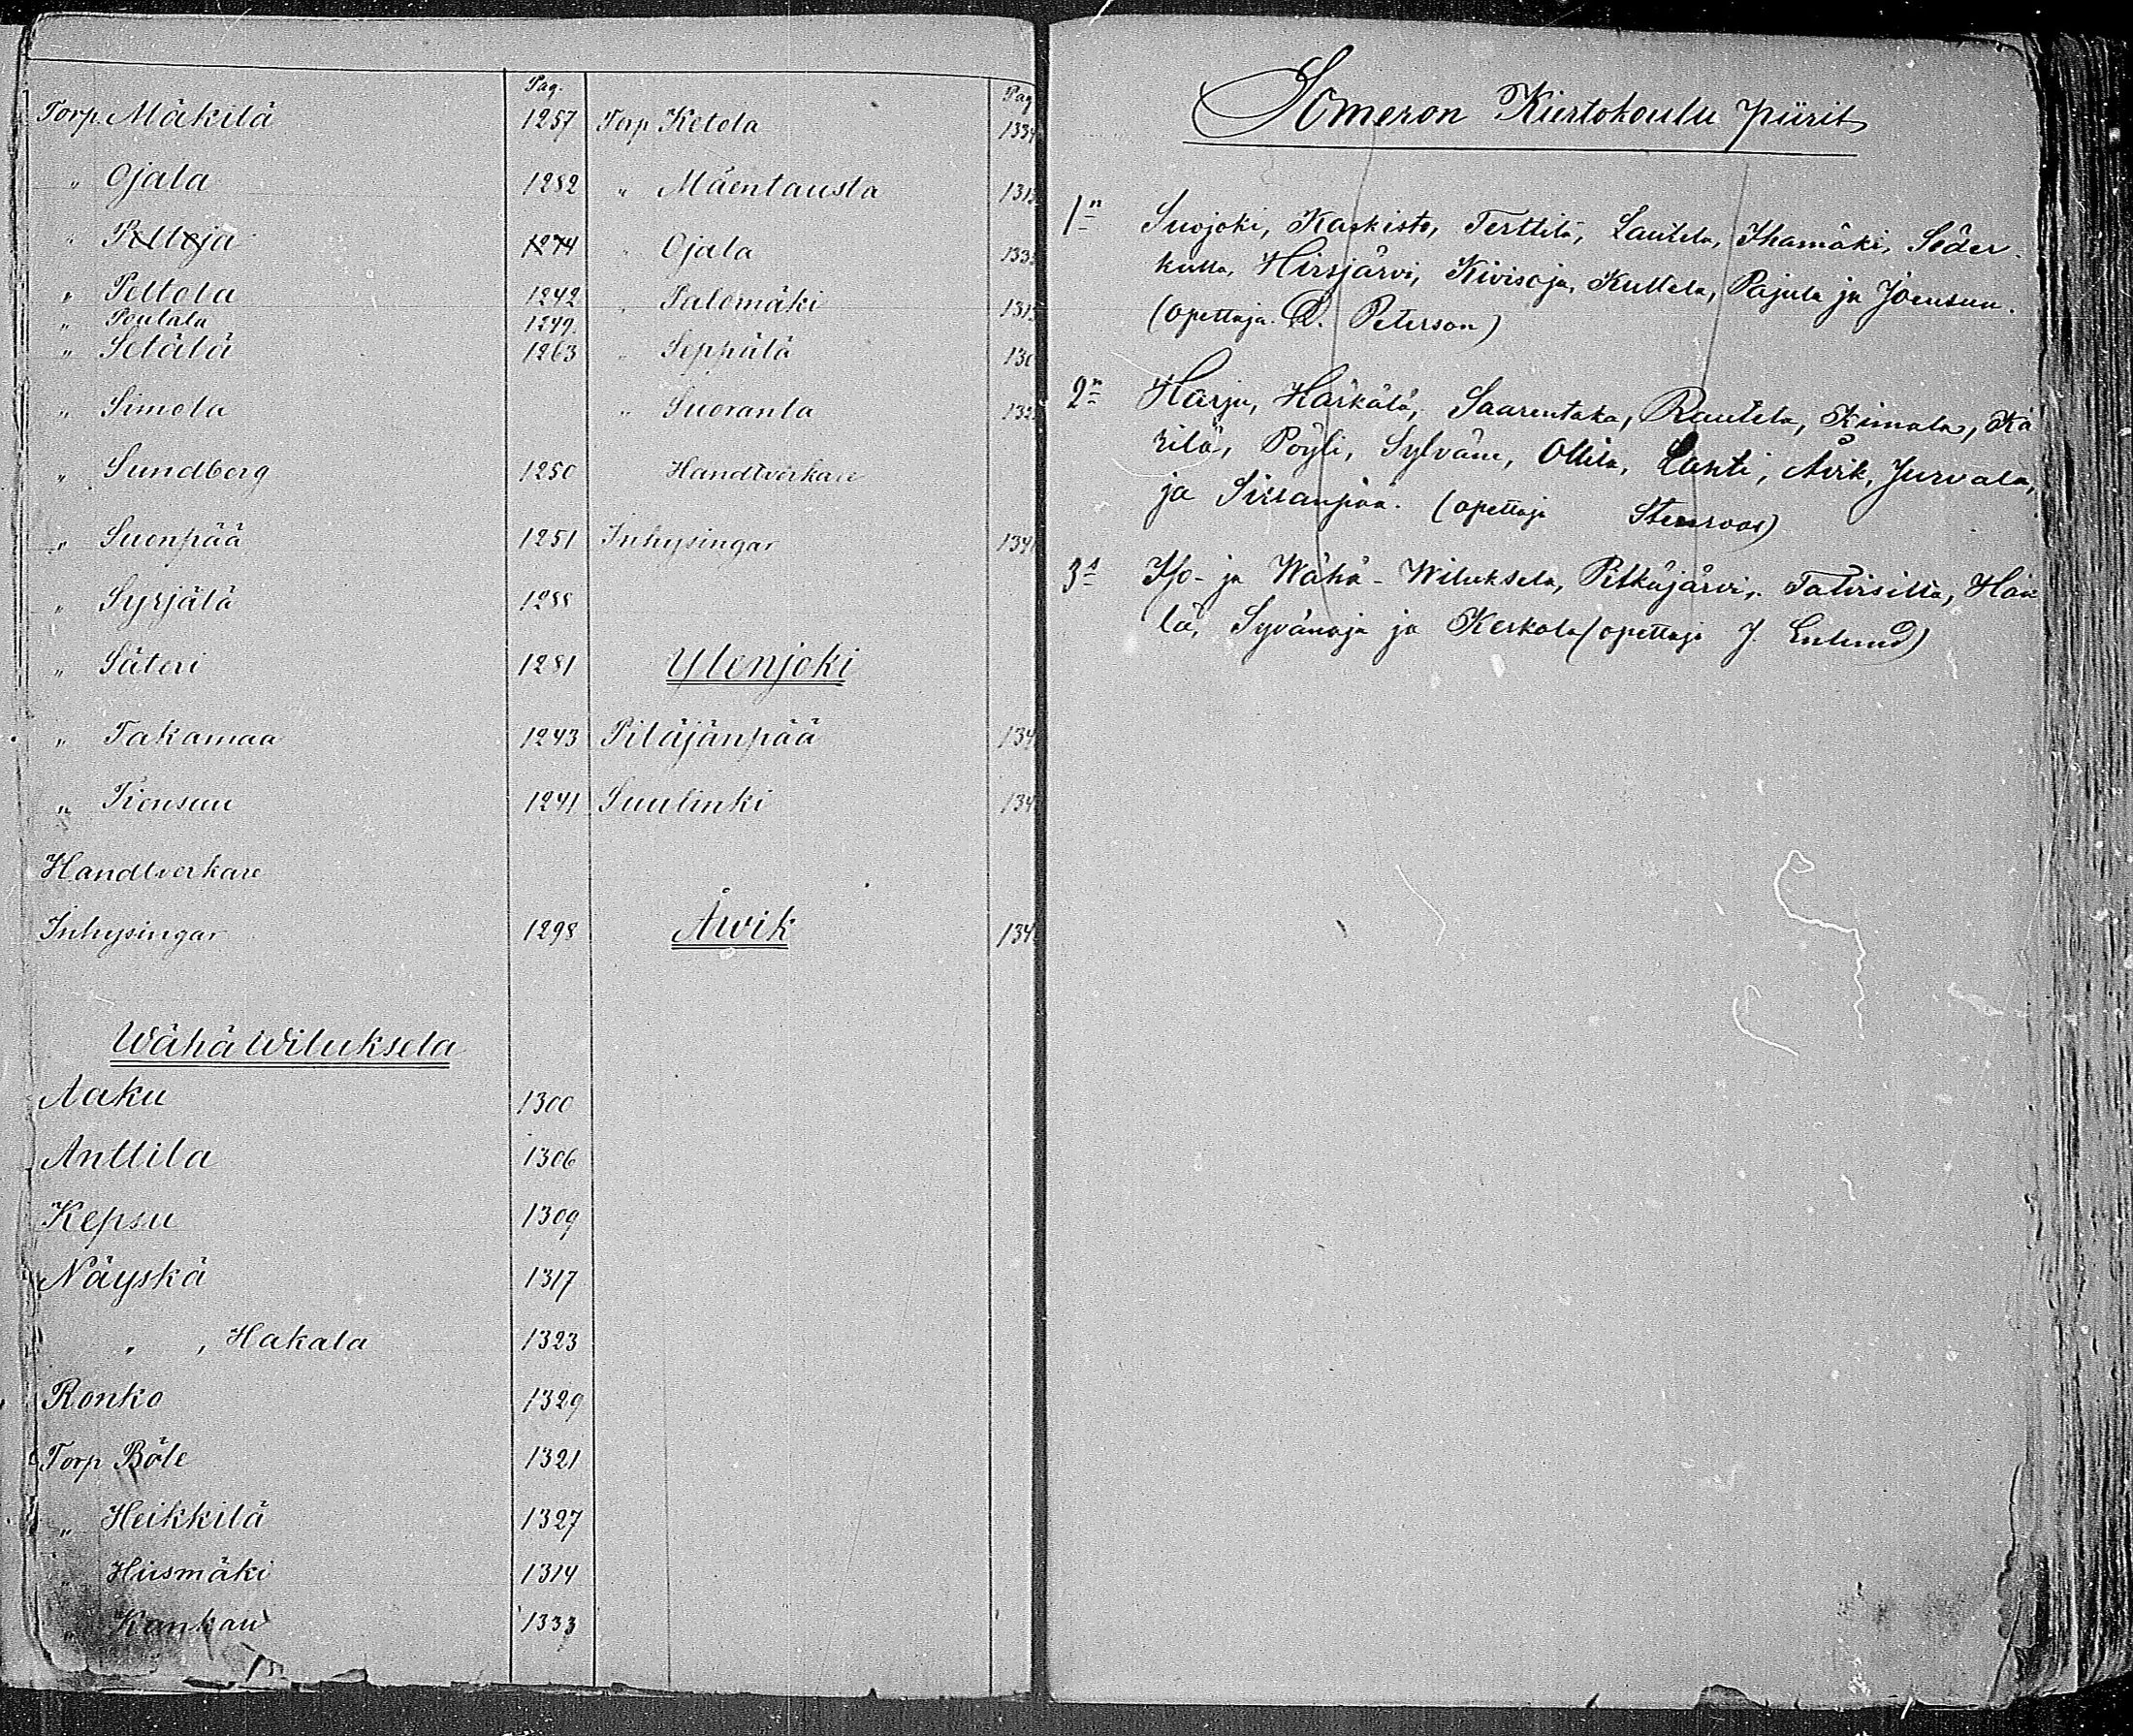 Pag.
Torp Mäkilä 1257
" Ojala 1282
" Peltoja 1274
" Peltola 1242
" Poutala 1249
" Setälä 1263
" Simola
" Sundberg 1250
" Suonpää 1251
" Syrjälä 1288
" Säteri 1281
" Takamaa 1243
" Tiensuu 1241
Handtverkare
Inhysingar 1298
Wähä Wiluksela
Aaku 1300
Anttila 1306
Kepsu 1309
Näyskä 1317
" , Hakala 1323
Ronko 1329
Torp Böle 1321
" Heikkilä 1327
" Hiismäki 1314
" Kankau 1333
Pag
Torp Ketola 1334
" Mäentausta 131
" Ojala 133
" Palomäki 131
" Seppälä 130
" Suoranta 132
Handtverkare
Inhysingar 134
Ylenjoki
Pitäjänpää 134
Suulinki 134
Åwik 134
Someron Kiertokoulu piirit
1n Suojoki, Kaskisto, Terttilä, Lautela, Ihamäki, Söder-
kulla, Hirsjärvi, Kivisoja, Kultela, Pajula ja Joensuu.
(opettaja Peterson)
2n Harju, Härkälä, Saarentaka, Rautela, Kimala, Kä
rilä, Pöyli, Sylvänä, Ollila, Lahti, Åvik, Jurvala,
ja Sillanpää. (opettaja Stenroos)
3s Iso- ja Wähä-Wiluksela, Pitkäjärvi, Talvisilta, Häi
lä, Syvänoja ja Kerkola (opettaja J. Enlund)